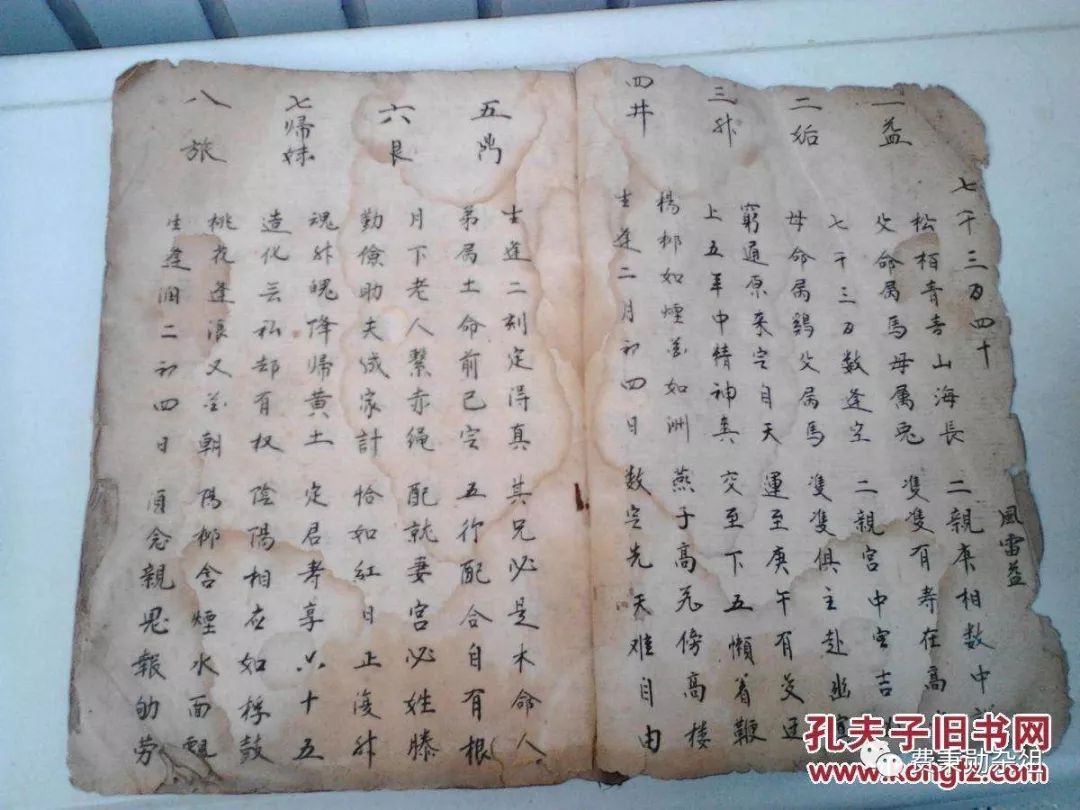 風雷益
七千三百四十
一益
松栢青青山海長 二親庚相数中
父命属馬母属兎 隻隻有寿在高
二姤
七千三百数逢空 二親宫中吉
母命属鷄父属馬 隻隻俱主赴幽冥
三升
窮通原来定自天 運至庚午有交迍
上五年中精神爽 交至下五懶着鞭
四井
楊柳如煙花如洲 燕子高飛傍高楼
生逢二月初四日 数定先天难自由
五鼎
生逢二刻定得真 其兄必是木命人
弟属土命前已定 五行配合自有根
六艮
月下老人繫赤绳 配就妻宫必姓滕
勤儉助夫成家計 恰如紅日正渡升
七歸妹
魂升魄降歸黄土 定君考享六十五
造化無私却有权 陰陽相应如桴鼓
八旅
桃花逢浪又花朝 陽柳含煙水面飄
生逢閏二初四日 酉念親恩報劬劳
孔夫子旧书网
www.kongfz.com
费秉勋杂俎